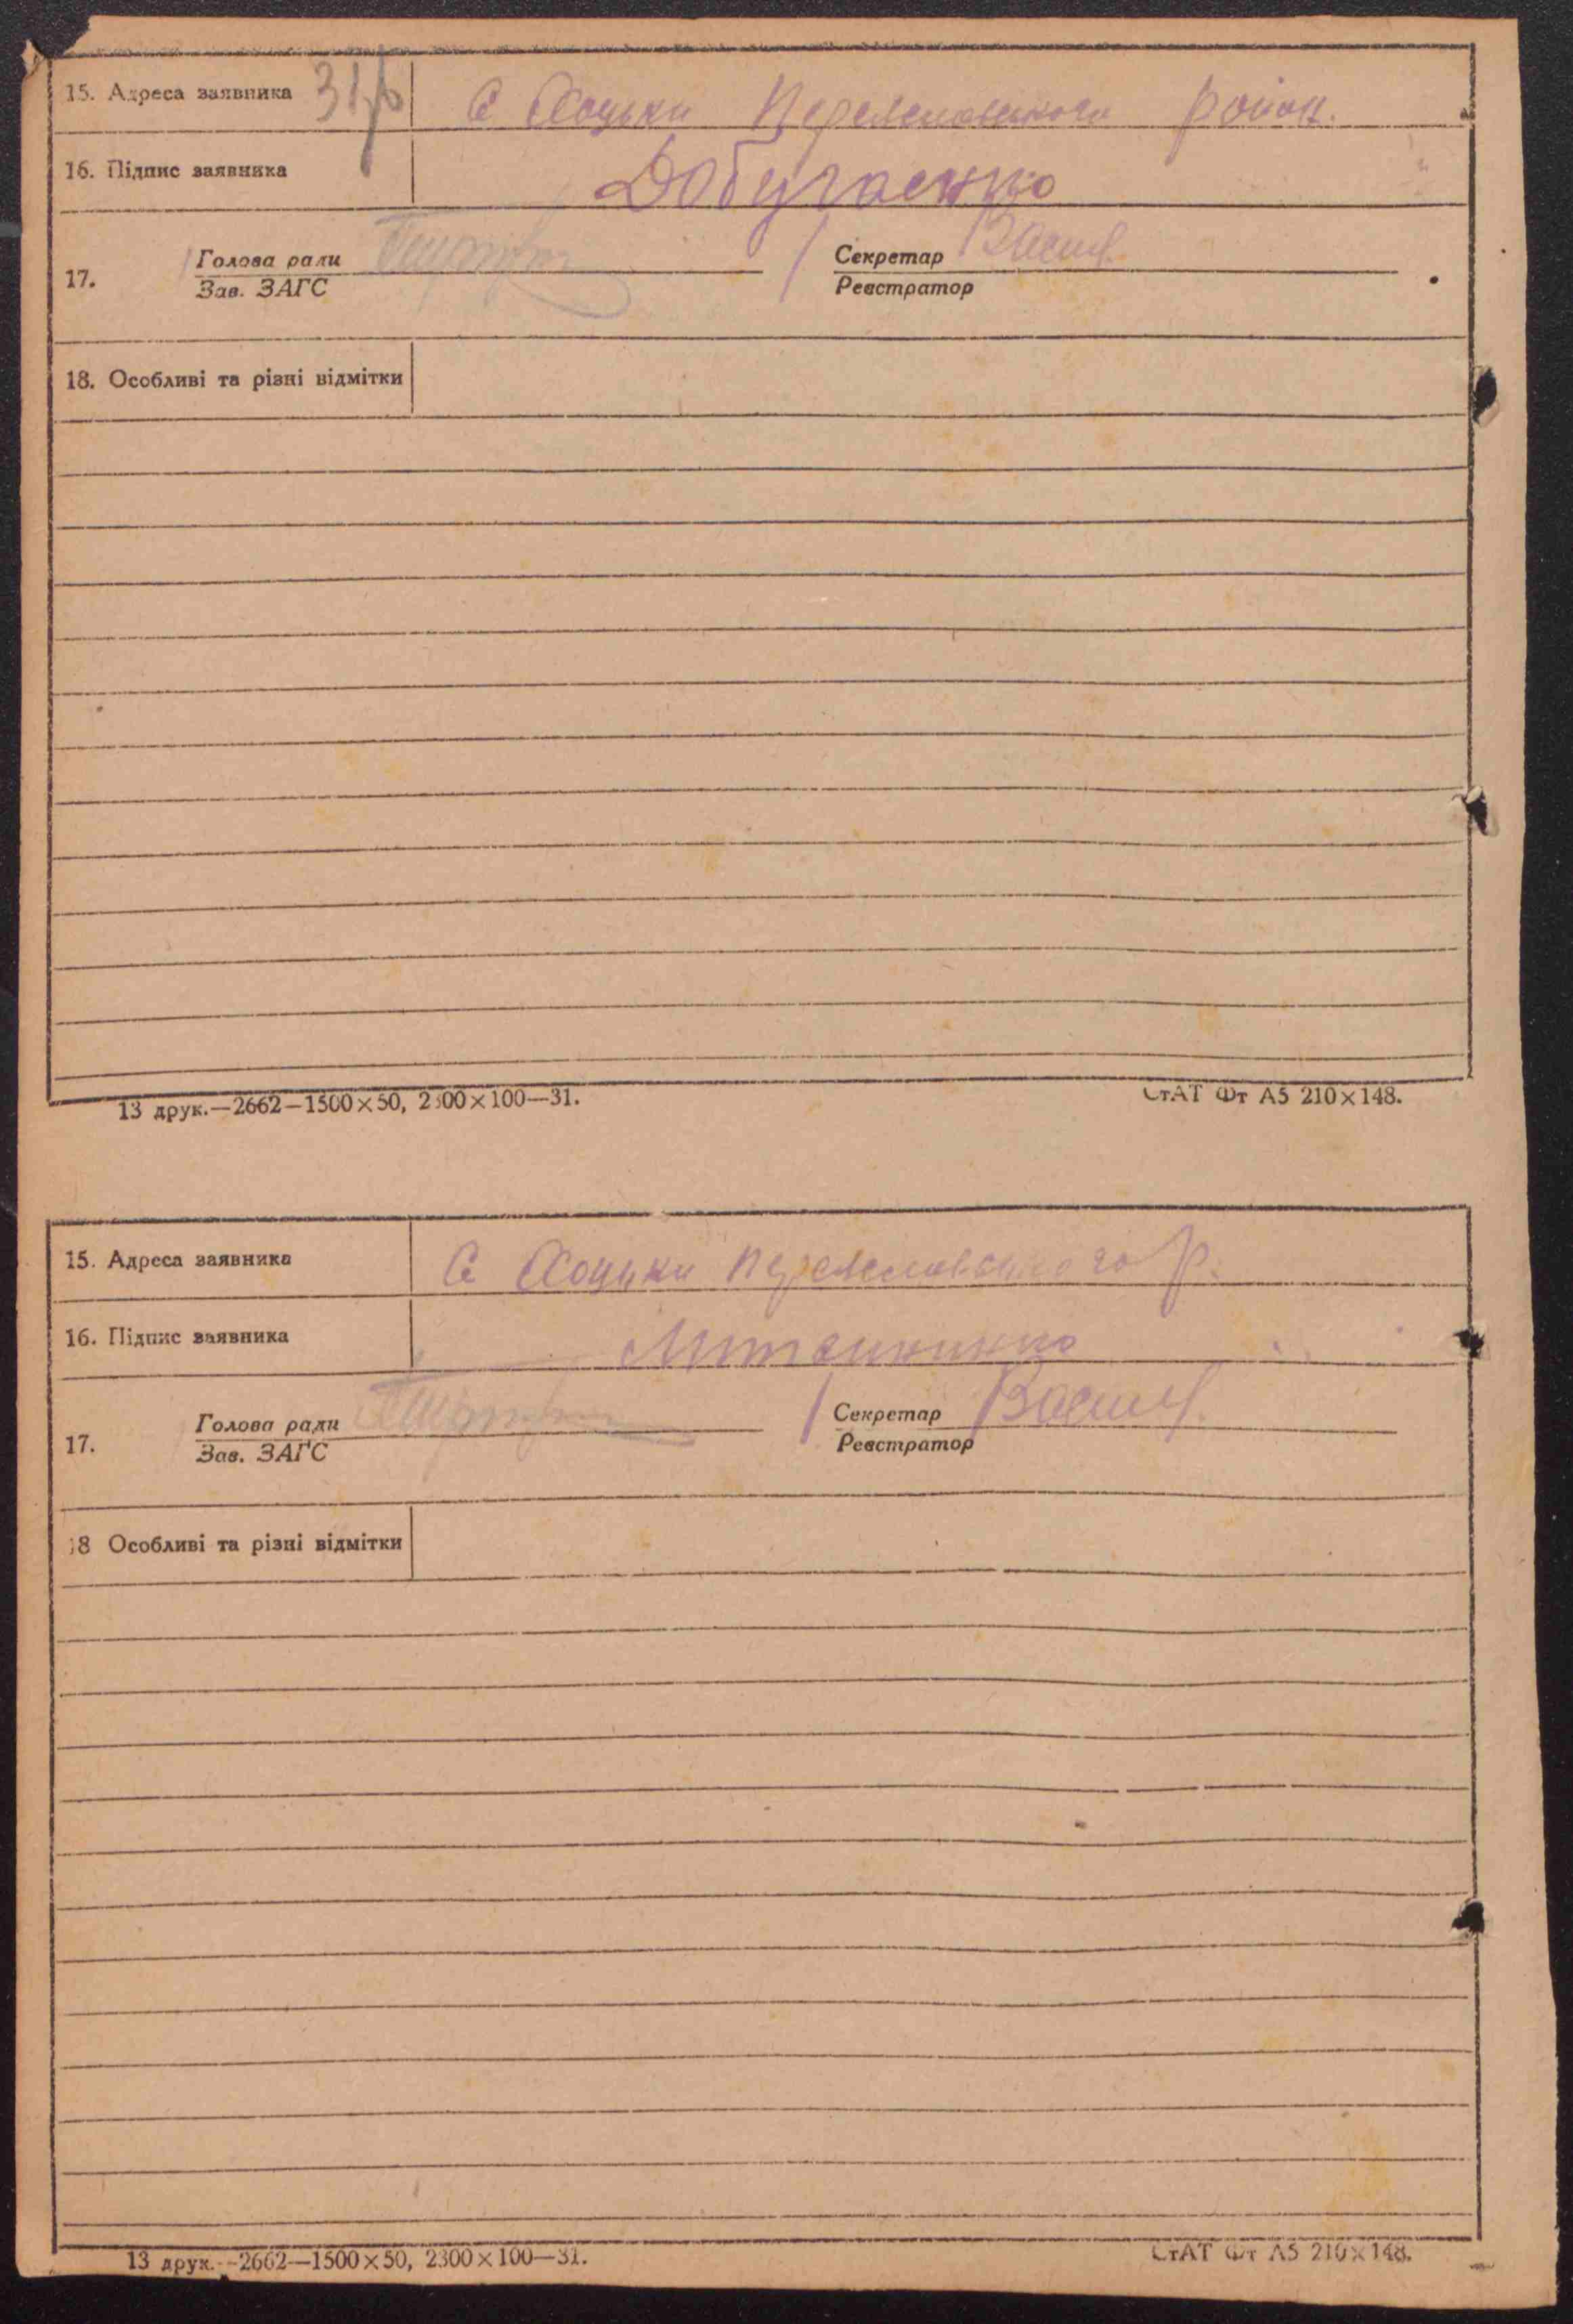 15. Адреса заявника С Хоцьки Переяславського район.
16. Підпис заявника
17. Голова ради Секретар
Зав. ЗАГС Реєстратор
18. Особливі та різні відмітки
13 друк.—2662—1500×50, 2300×100—31. СтАТ Фт А5 210×148.
15. Адреса заявника С Хоцьки Переяславського р.
16. Підпис заявника
17. Голова ради Секретар
Зав. ЗАГС Реєстратор
18 Особливі та різні відмітки
13 друк.—2662—1500×50, 2300×100—31. СтАТ Фт А5 210×148.